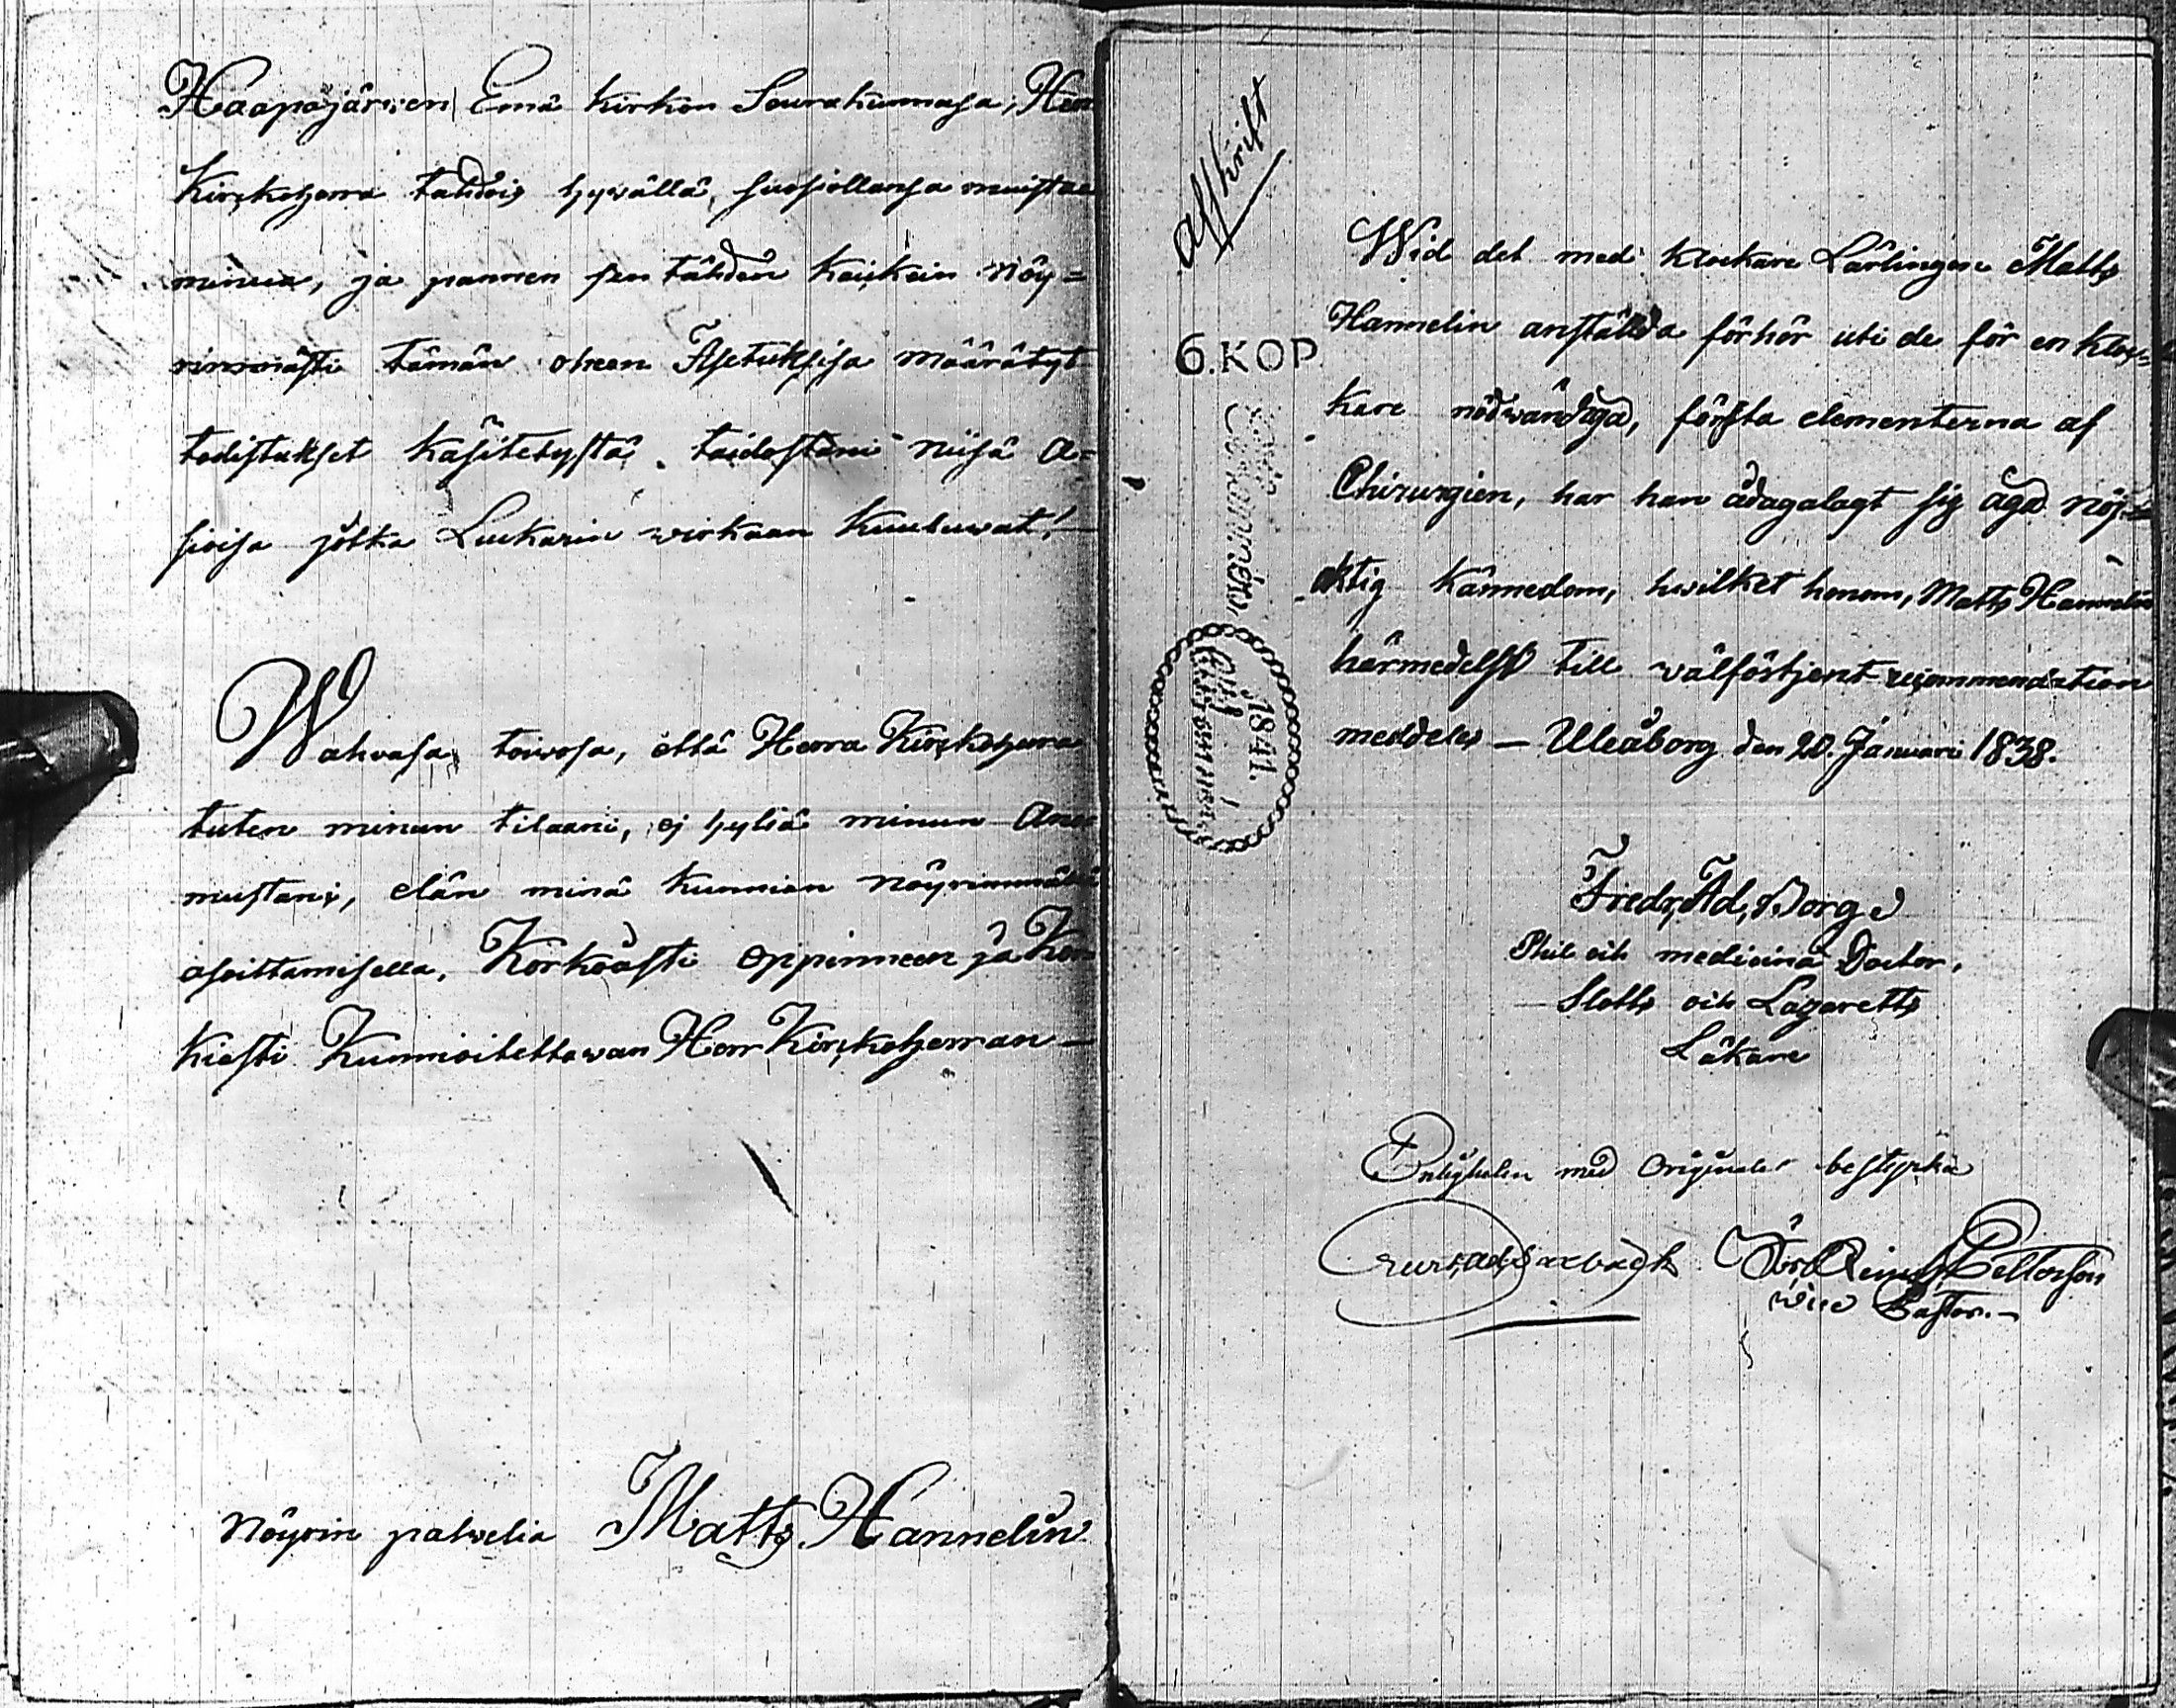 Haapajärwen Emä kirkon Seurakunnasa, Herr
Kirkkoherra tahdois hywällä, suosiollansa muistaa
minua, ja pannen sen tähden kaikein nöy=
rimmästi tämän oheen Asetuksisa määrätyt
todistukset käsitetystä taidostani niisä a=
sioisa jotka Luckarin wirkaan kuuluwat!
Wahwasa toiwosa, että Herra Kirkkoherra
tuten minun tilaani, ej hyljä minun Ano
mustani, elän minä kunnian nöyrimmällä
osoittamisella, Korkiasti Oppinneen ja Kor
kiasti Kunnioitettawan Herr Kirkkoherran —
Nöyrin palwelia Matts Hannelin
Afskrift
6.KOP
1841.
Wid det med klockare Lärlingen Matts
Hannelin anställda förhör uti de för en kloc=
kare nödwändiga, första elementerna af
Chirurgien, har han ådagalagt sig äga nöj=
aktig kännedom, hwilket honom, Matts Hannelin
härmedelst till wälförtjent recommendation
meddeles — Uleåborg den 20. Januari 1838.
Fredr, Ad, Borg
Phil och medicinä Doctor,
Slotts och Lazaretts
Läkare
Enligheten med Originalet bestyrka
Pettersson
vice Pastor. —